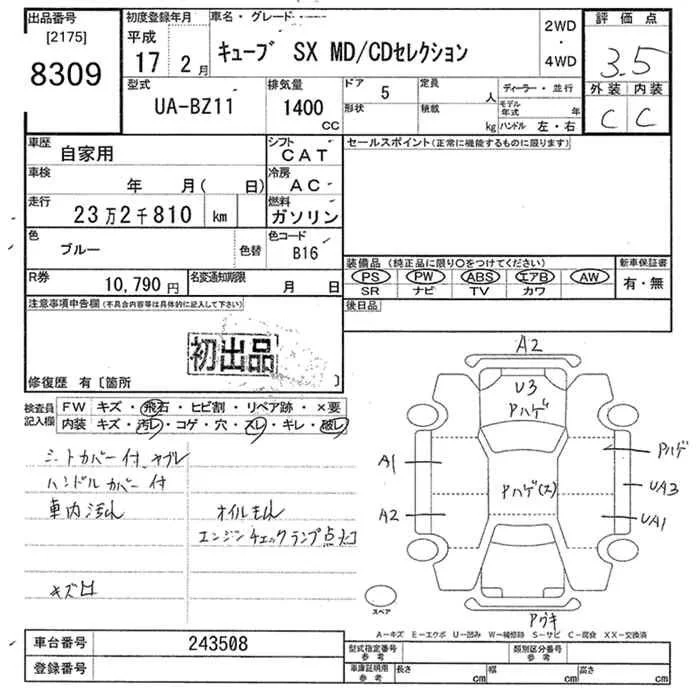 出品番号
[2175]
8309
初度登録年月
平成
17 2 月
車名・グレード
キューブ SX MD/CDセレクション
2WD
・
4WD
評価点
3.5
外装 内装
C C
型式
UA-BZ11
排気量
1400
cc
ドア
5
定員
人
形状
積載
kg
ディーラー・並行
モデル年式 年
ハンドル 左・右
車歴
自家用
シフト
CAT
車検
年 月( 日)
冷房
AC
走行
23万2千810 km
燃料
ガソリン
色
ブルー
色替
色コード
B16
R券
10,790 円
名変通知期限
月 日
セールスポイント(正常に機能するものに限ります)
装備品 (純正品に限り○をつけてください)
PS PW ABS エアB AW
SR ナビ TV カワ
新車保証書
有・無
後日品
注意事項申告欄(不具合内容等は具体的に記入して下さい)
初出品
修復歴 有〔箇所 〕
検査員記入欄
FW キズ・飛石・ヒビ割・リペア跡・×要
内装 キズ・汚レ・コゲ・穴・スレ・キレ・破レ
シートカバー付 ヤブレ
ハンドルカバー付
オイルもれ
エンジンチェックランプ点
A2
U3
Pハゲ
A1
Pハゲ
Pハゲ(ス)
UA3
A2
UA1
スペア
A-キズ E-エクボ U-凹み W-補修跡 S-サビ C-腐食 XX-交換済
車台番号
243508
登録番号
型式指定番号
参考
類別区分番号
参考
車庫証明用
参考
長さ cm
幅 cm
高さ cm